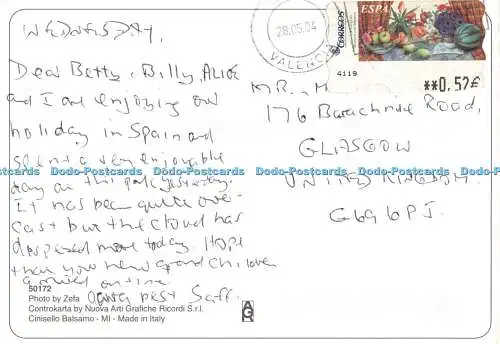 WEDNESDAY.
Dear Betty, Billy, Alice
and I are enjoying our
holiday in Spain and
spent a very enjoyable
day on this park yesterday.
It has been quite over-
cast but the cloud has
dispersed more today. Hope
that your new grandchildren
arrived on time.
best Saff.
50172
Photo by Zefa
Controkarta by Nuova Arti Grafiche Ricordi S.r.l.
Cinisello Balsamo - MI - Made in Italy
AGR
28.05.04
VALENCIA
CORREOS
ESPAÑA
4119
**0,52€
MR.
176 Barachnie Road,
GLASGOW
UNITED KINGDOM.
G69 6PJ.
Dodo-Postcards Dodo-Postcards Dodo-Postcards Dodo-Postcards Dodo-Postcards